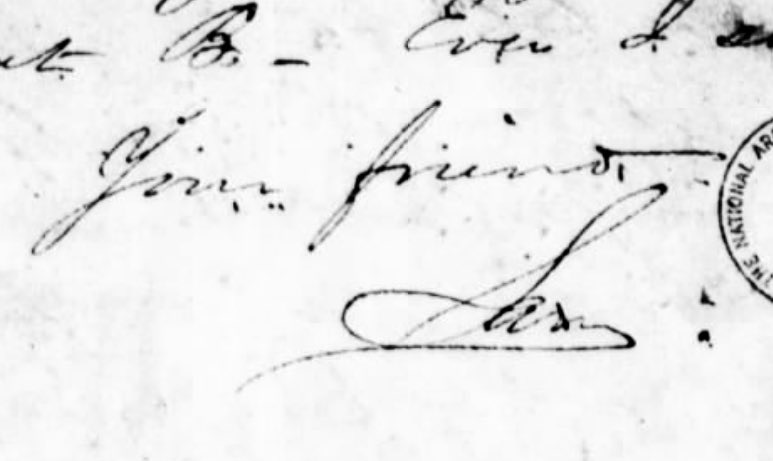 it B. – Ever I
Your friend,
Sam
THE NATIONAL AR